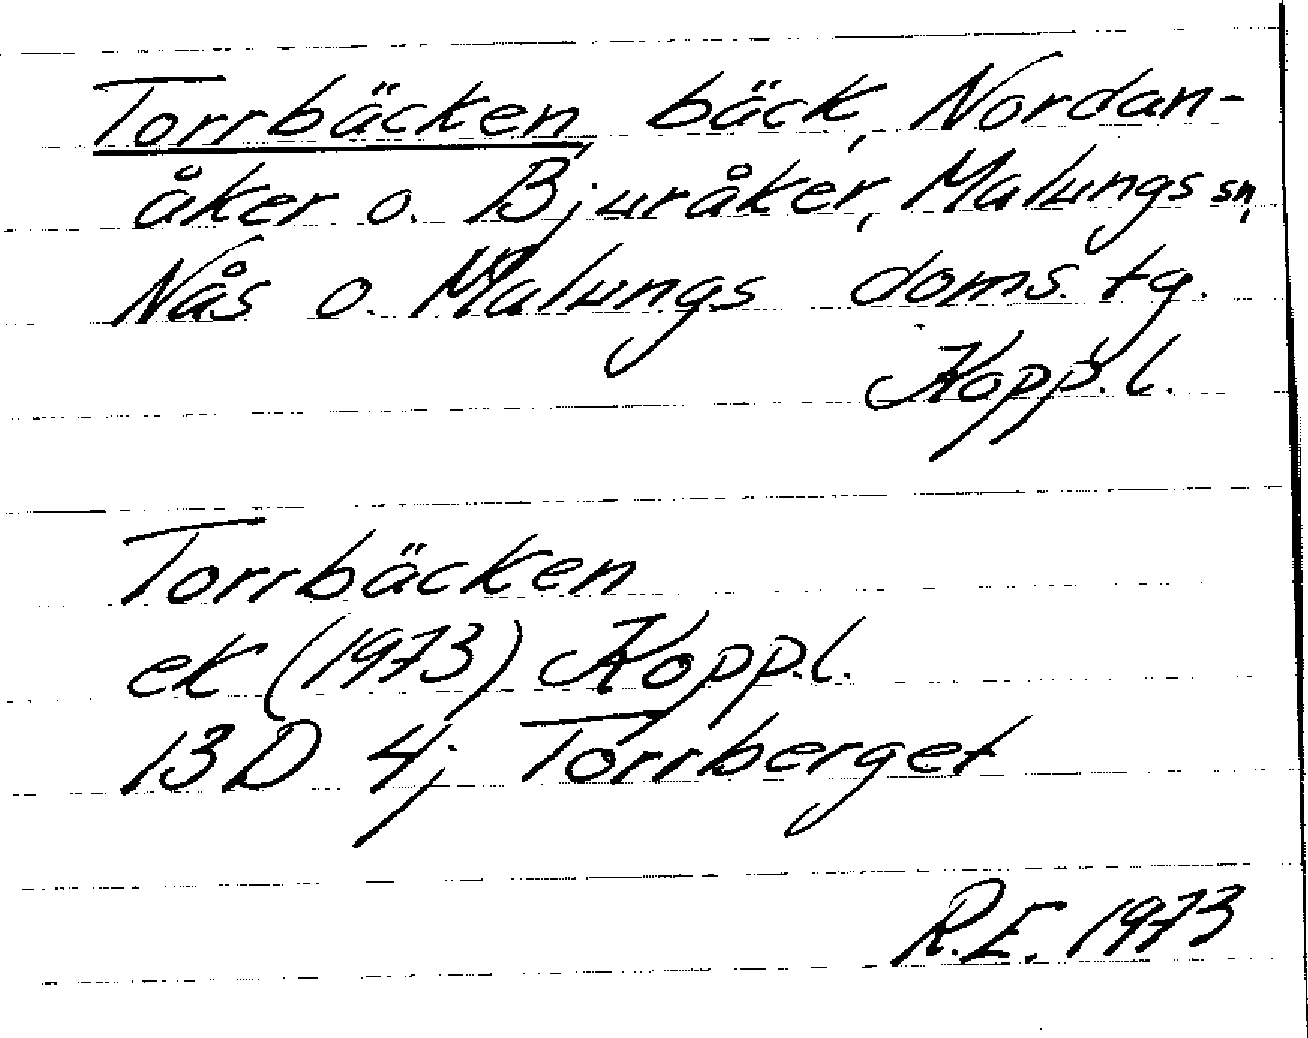 Torrbäcken, bäck, Nordan-
åker o. Bjuråker, Malungs sn,
Nås o. Malungs doms. tg.
Kopp. l.
Torrbäcken
ek (1973) Kopp. l.
13D 4j Torrberget
R.E. 1973